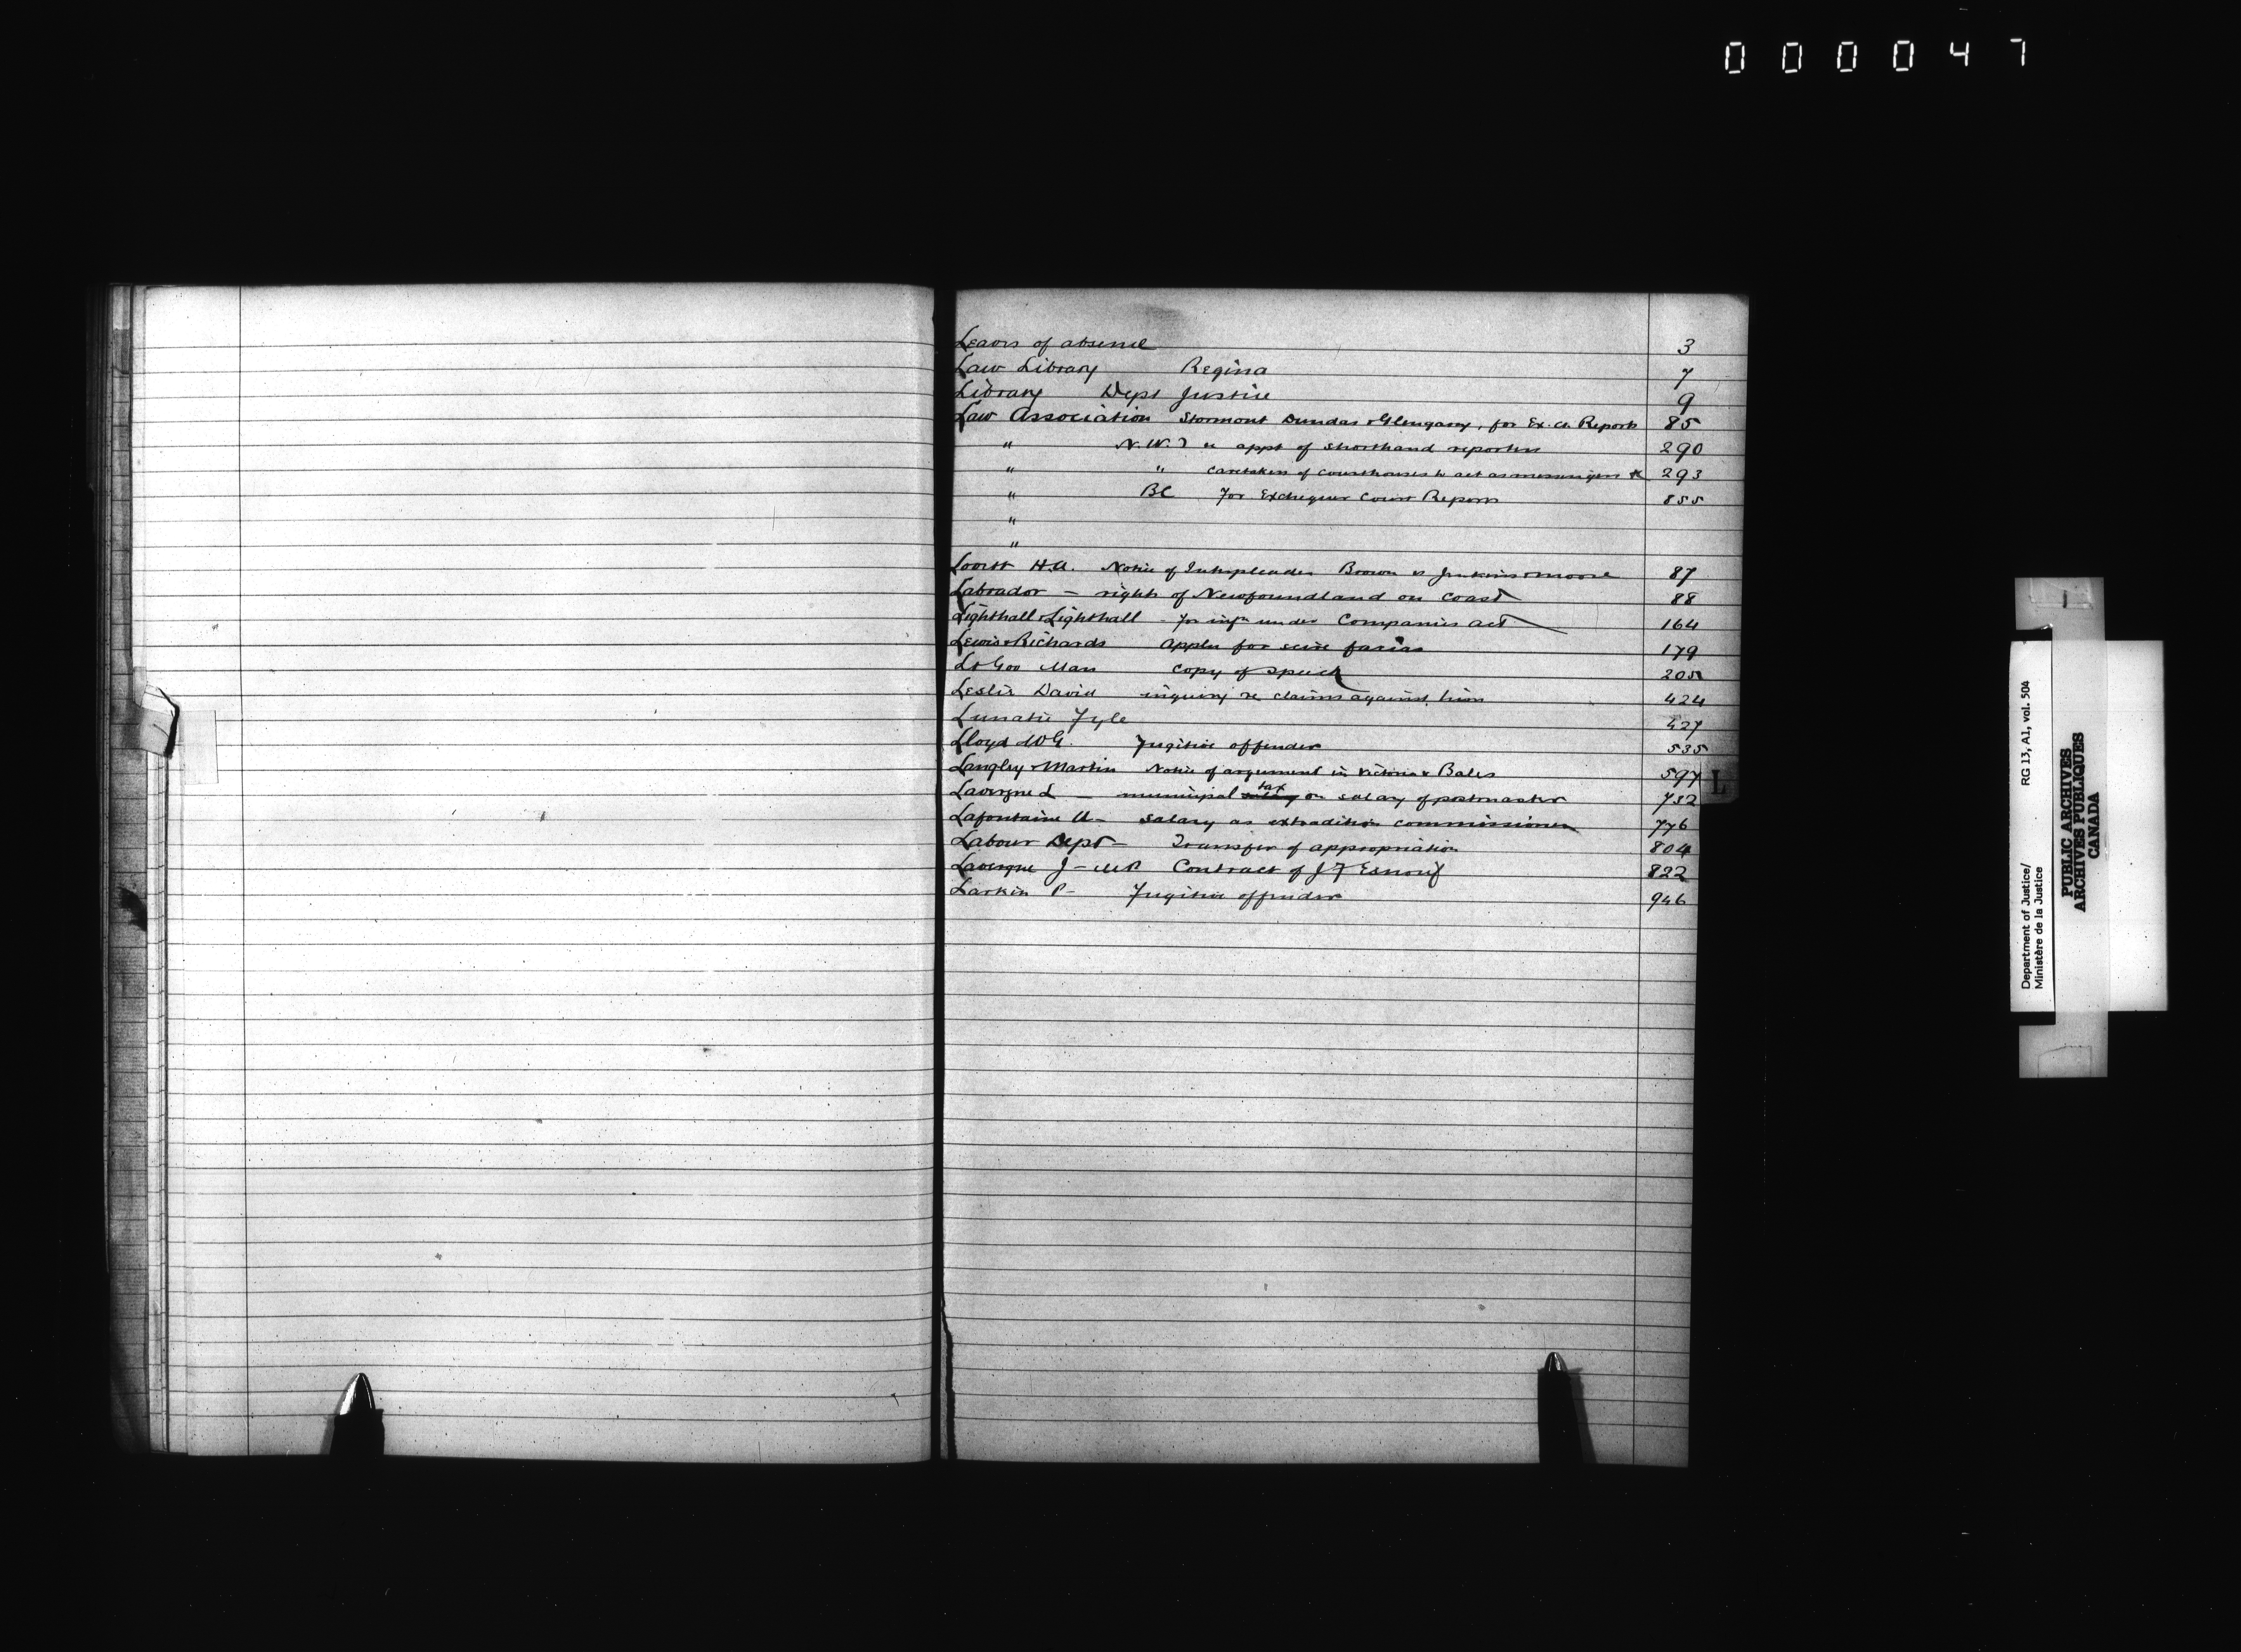 000047
Leaves of absence 3
Law Library Regina 7
Library Dept Justice 9
Law Association Stormont Dundas & Glengarry, for Ex. Ct. Reports 85
" N.W.T re appt of shorthand reporters 290
" " Caretakers of courthouses to act as messengers &c 293
" BC for Exchequer Court Reports 855
"
"
Lovitt H.A. Notice of Interpleader Brown vs Jenkins & Moore 87
Labrador - rights of Newfoundland on Coast 88
Lighthall & Lighthall - for infn under Companies act 164
Lewis & Richards Appln for scire facias 179
Man copy of speech 205
Leslie David inquiry re claims against him 424
Lunatic Fyle 427
Lloyd W.G. Fugitive offender 535
Langley & Martin Notice of argument in Victoria v Bales 597
Lavergne L - municipal tax on salary of postmaster 732
Lafontaine U - Salary as extradition commissioner 776
Labour Dept - Transfer of appropriation 804
Lavergne J - MP Contract of J F Esnouf 822
Larkin P - Fugitive offender 946
L
Department of Justice/
Ministère de la Justice
RG 13, A1, vol. 504
PUBLIC ARCHIVES
ARCHIVES PUBLIQUES
CANADA